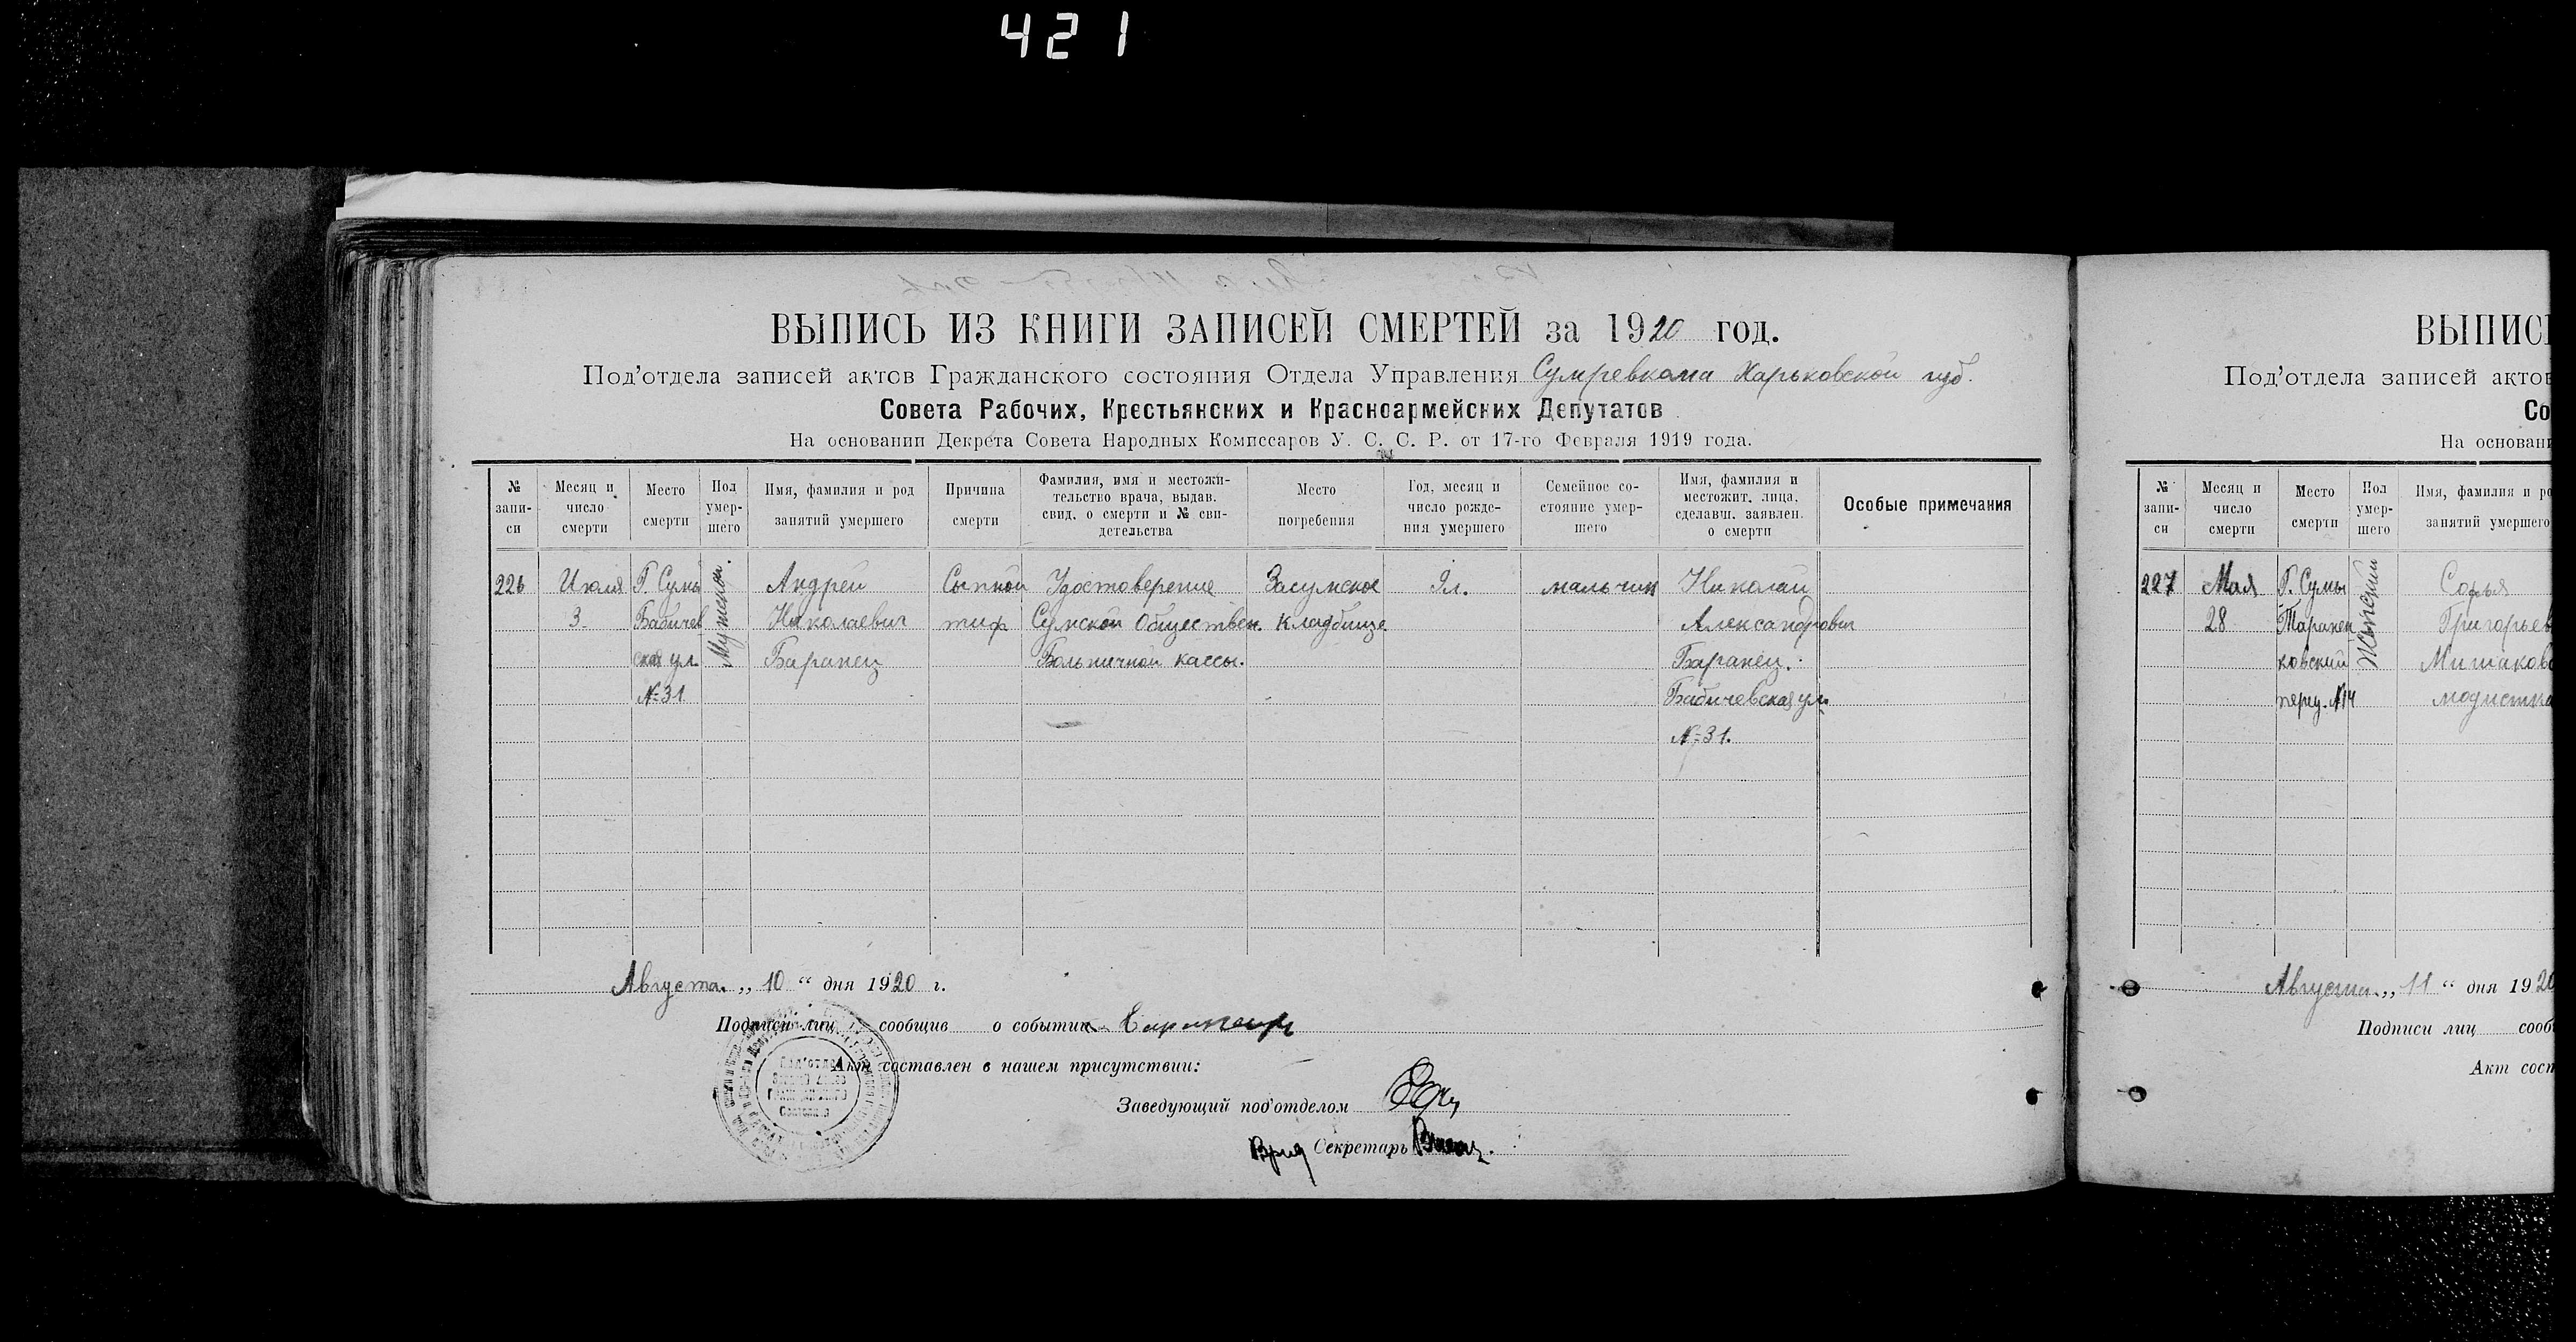 421
ВЫПИСЬ ИЗ КНИГИ ЗАПИСЕЙ СМЕРТЕЙ за 1920 год.
Под'отдела записей актов Гражданского состояния Отдела Управления Сумревкома Харьковской губ.
Совета Рабочих, Крестьянских и Красноармейских Депутатов
На основании Декрета Совета Народных Комиссаров У. С. С. Р. от 17-го Февраля 1919 года.
№ запи-си
Месяц и число смерти
Место смерти
Пол умер-шего
Имя, фамилия и род занятий умершего
Причина смерти
Фамилия, имя и местожи-тельство врача, выдав. свид. о смерти и № сви-детельства
Место погребения
Год, месяц и число рожде-ния умершего
Семейное со-стояние умер-шего
Имя, фамилия и местожит. лица, сделавш. заявлен. о смерти
Особые примечания
226 Июля Г. Сумы Мужской. Андрей Сыпной Удостоверение Засумское 9л. мальчик Николай
3. Бабичев Николаевич тиф Сумской Обществен. кладбище Александрович
ская ул. Баранец Больничной кассы. Баранец.
№31 Бабичевская ул.
№31.
Августа „ 10 “ дня 1920 г.
Подписи лиц сообщив о событии
Акт составлен в нашем присутствии:
Заведующий под'отделом
Врид Секретарь
Под'отдел
Записей Актов
Гражданского
Состояния
ВЫПИС
Под'отдела записей актов
Со
На основани
№ запи-си
Месяц и число смерти
Место смерти
Пол умер-шего
Имя, фамилия и ро
занятий умершего
227 Мая Г. Сумы Женский Софья
28 Таранен Григорьев
ковский Мишаков
переу. №14 модистка
Августа „ 11 “ дня 1920
Подписи лиц сооб
Акт сост